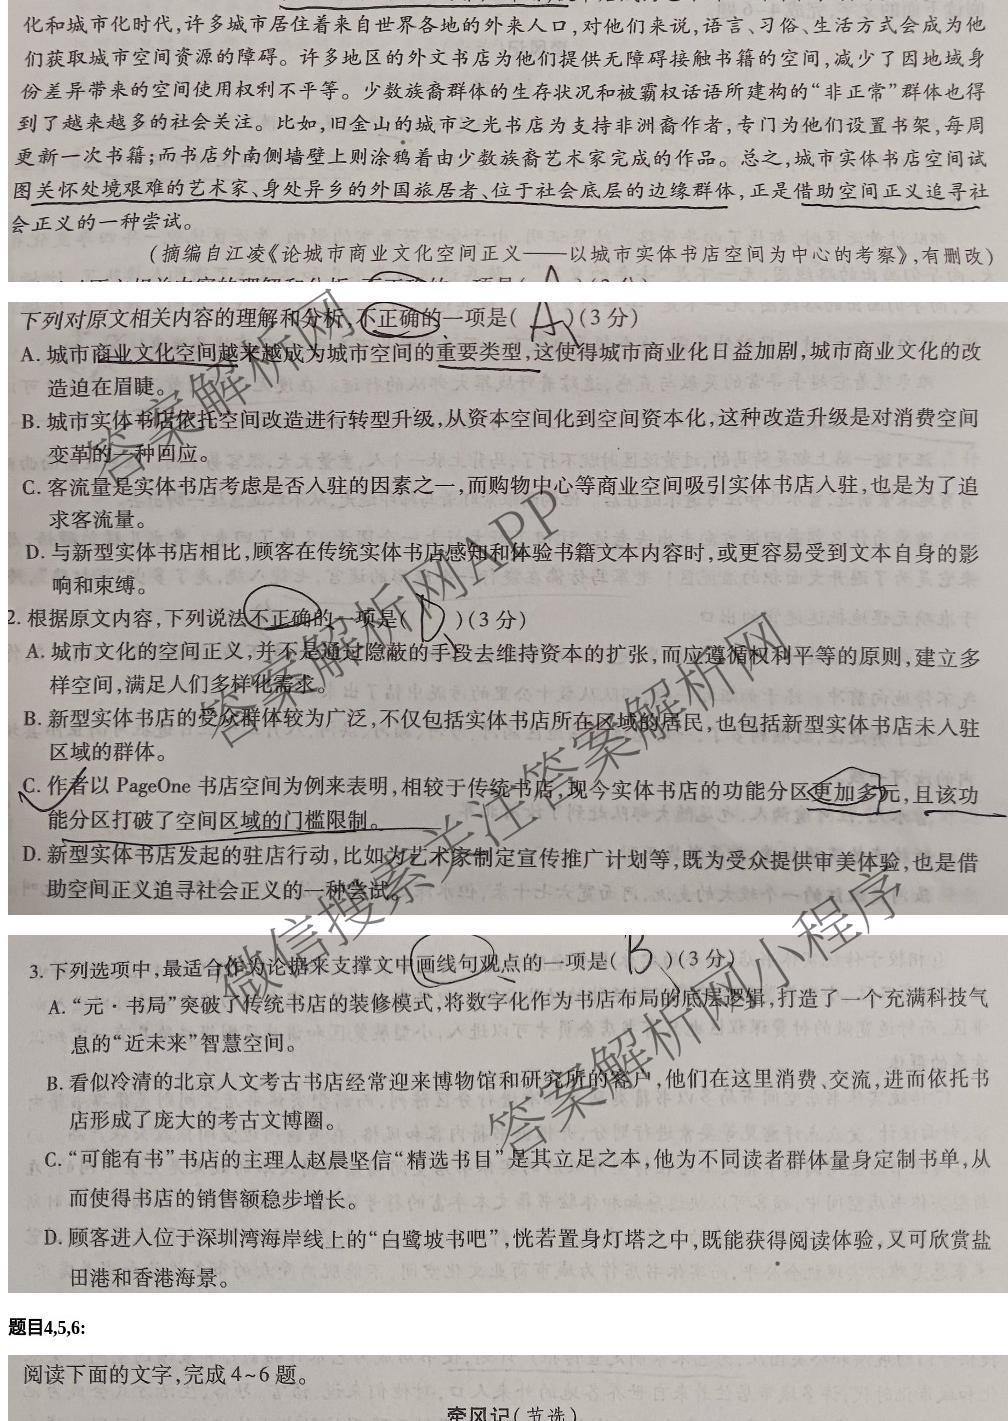 化和城市化时代,许多城市居住着来自世界各地的外来人口,对他们来说,语言、习俗、生活方式会成为他
们获取城市空间资源的障碍。许多地区的外文书店为他们提供无障碍接触书籍的空间,减少了因地域身
份差异带来的空间使用权利不平等。少数族裔群体的生存状况和被霸权话语所建构的“非正常”群体也得
到了越来越多的社会关注。比如,旧金山的城市之光书店为支持非洲裔作者,专门为他们设置书架,每周
更新一次书籍;而书店外南侧墙壁上则涂鸦着由少数族裔艺术家完成的作品。总之,城市实体书店空间试
图关怀处境艰难的艺术家、身处异乡的外国旅居者、位于社会底层的边缘群体,正是借助空间正义追寻社
会正义的一种尝试。
(摘编自江凌《论城市商业文化空间正义——以城市实体书店空间为中心的考察》,有删改)
下列对原文相关内容的理解和分析,不正确的一项是( A )(3分)
A. 城市商业文化空间越来越成为城市空间的重要类型,这使得城市商业化日益加剧,城市商业文化的改
造迫在眉睫。
B. 城市实体书店依托空间改造进行转型升级,从资本空间化到空间资本化,这种改造升级是对消费空间
变革的一种回应。
C. 客流量是实体书店考虑是否入驻的因素之一,而购物中心等商业空间吸引实体书店入驻,也是为了追
求客流量。
D. 与新型实体书店相比,顾客在传统实体书店感知和体验书籍文本内容时,或更容易受到文本自身的影
响和束缚。
2. 根据原文内容,下列说法不正确的一项是( D )(3分)
A. 城市文化的空间正义,并不是通过隐蔽的手段去维持资本的扩张,而应遵循权利平等的原则,建立多
样空间,满足人们多样化需求。
B. 新型实体书店的受众群体较为广泛,不仅包括实体书店所在区域的居民,也包括新型实体书店未入驻
区域的群体。
C. 作者以 PageOne 书店空间为例来表明,相较于传统书店,现今实体书店的功能分区更加多元,且该功
能分区打破了空间区域的门槛限制。
D. 新型实体书店发起的驻店行动,比如为艺术家制定宣传推广计划等,既为受众提供审美体验,也是借
助空间正义追寻社会正义的一种尝试。
3. 下列选项中,最适合作为论据来支撑文中画线句观点的一项是( B )(3分)
A. “元·书局”突破了传统书店的装修模式,将数字化作为书店布局的底层逻辑,打造了一个充满科技气
息的“近未来”智慧空间。
B. 看似冷清的北京人文考古书店经常迎来博物馆和研究所的客户,他们在这里消费、交流,进而依托书
店形成了庞大的考古文博圈。
C. “可能有书”书店的主理人赵晨坚信“精选书目”是其立足之本,他为不同读者群体量身定制书单,从
而使得书店的销售额稳步增长。
D. 顾客进入位于深圳湾海岸线上的“白鹭坡书吧”,恍若置身灯塔之中,既能获得阅读体验,又可欣赏盐
田港和香港海景。
题目4,5,6:
阅读下面的文字,完成4~6题。
牵风记(节选)
答案解析网
答案解析网APP
微信搜索关注答案解析网
答案解析网小程序